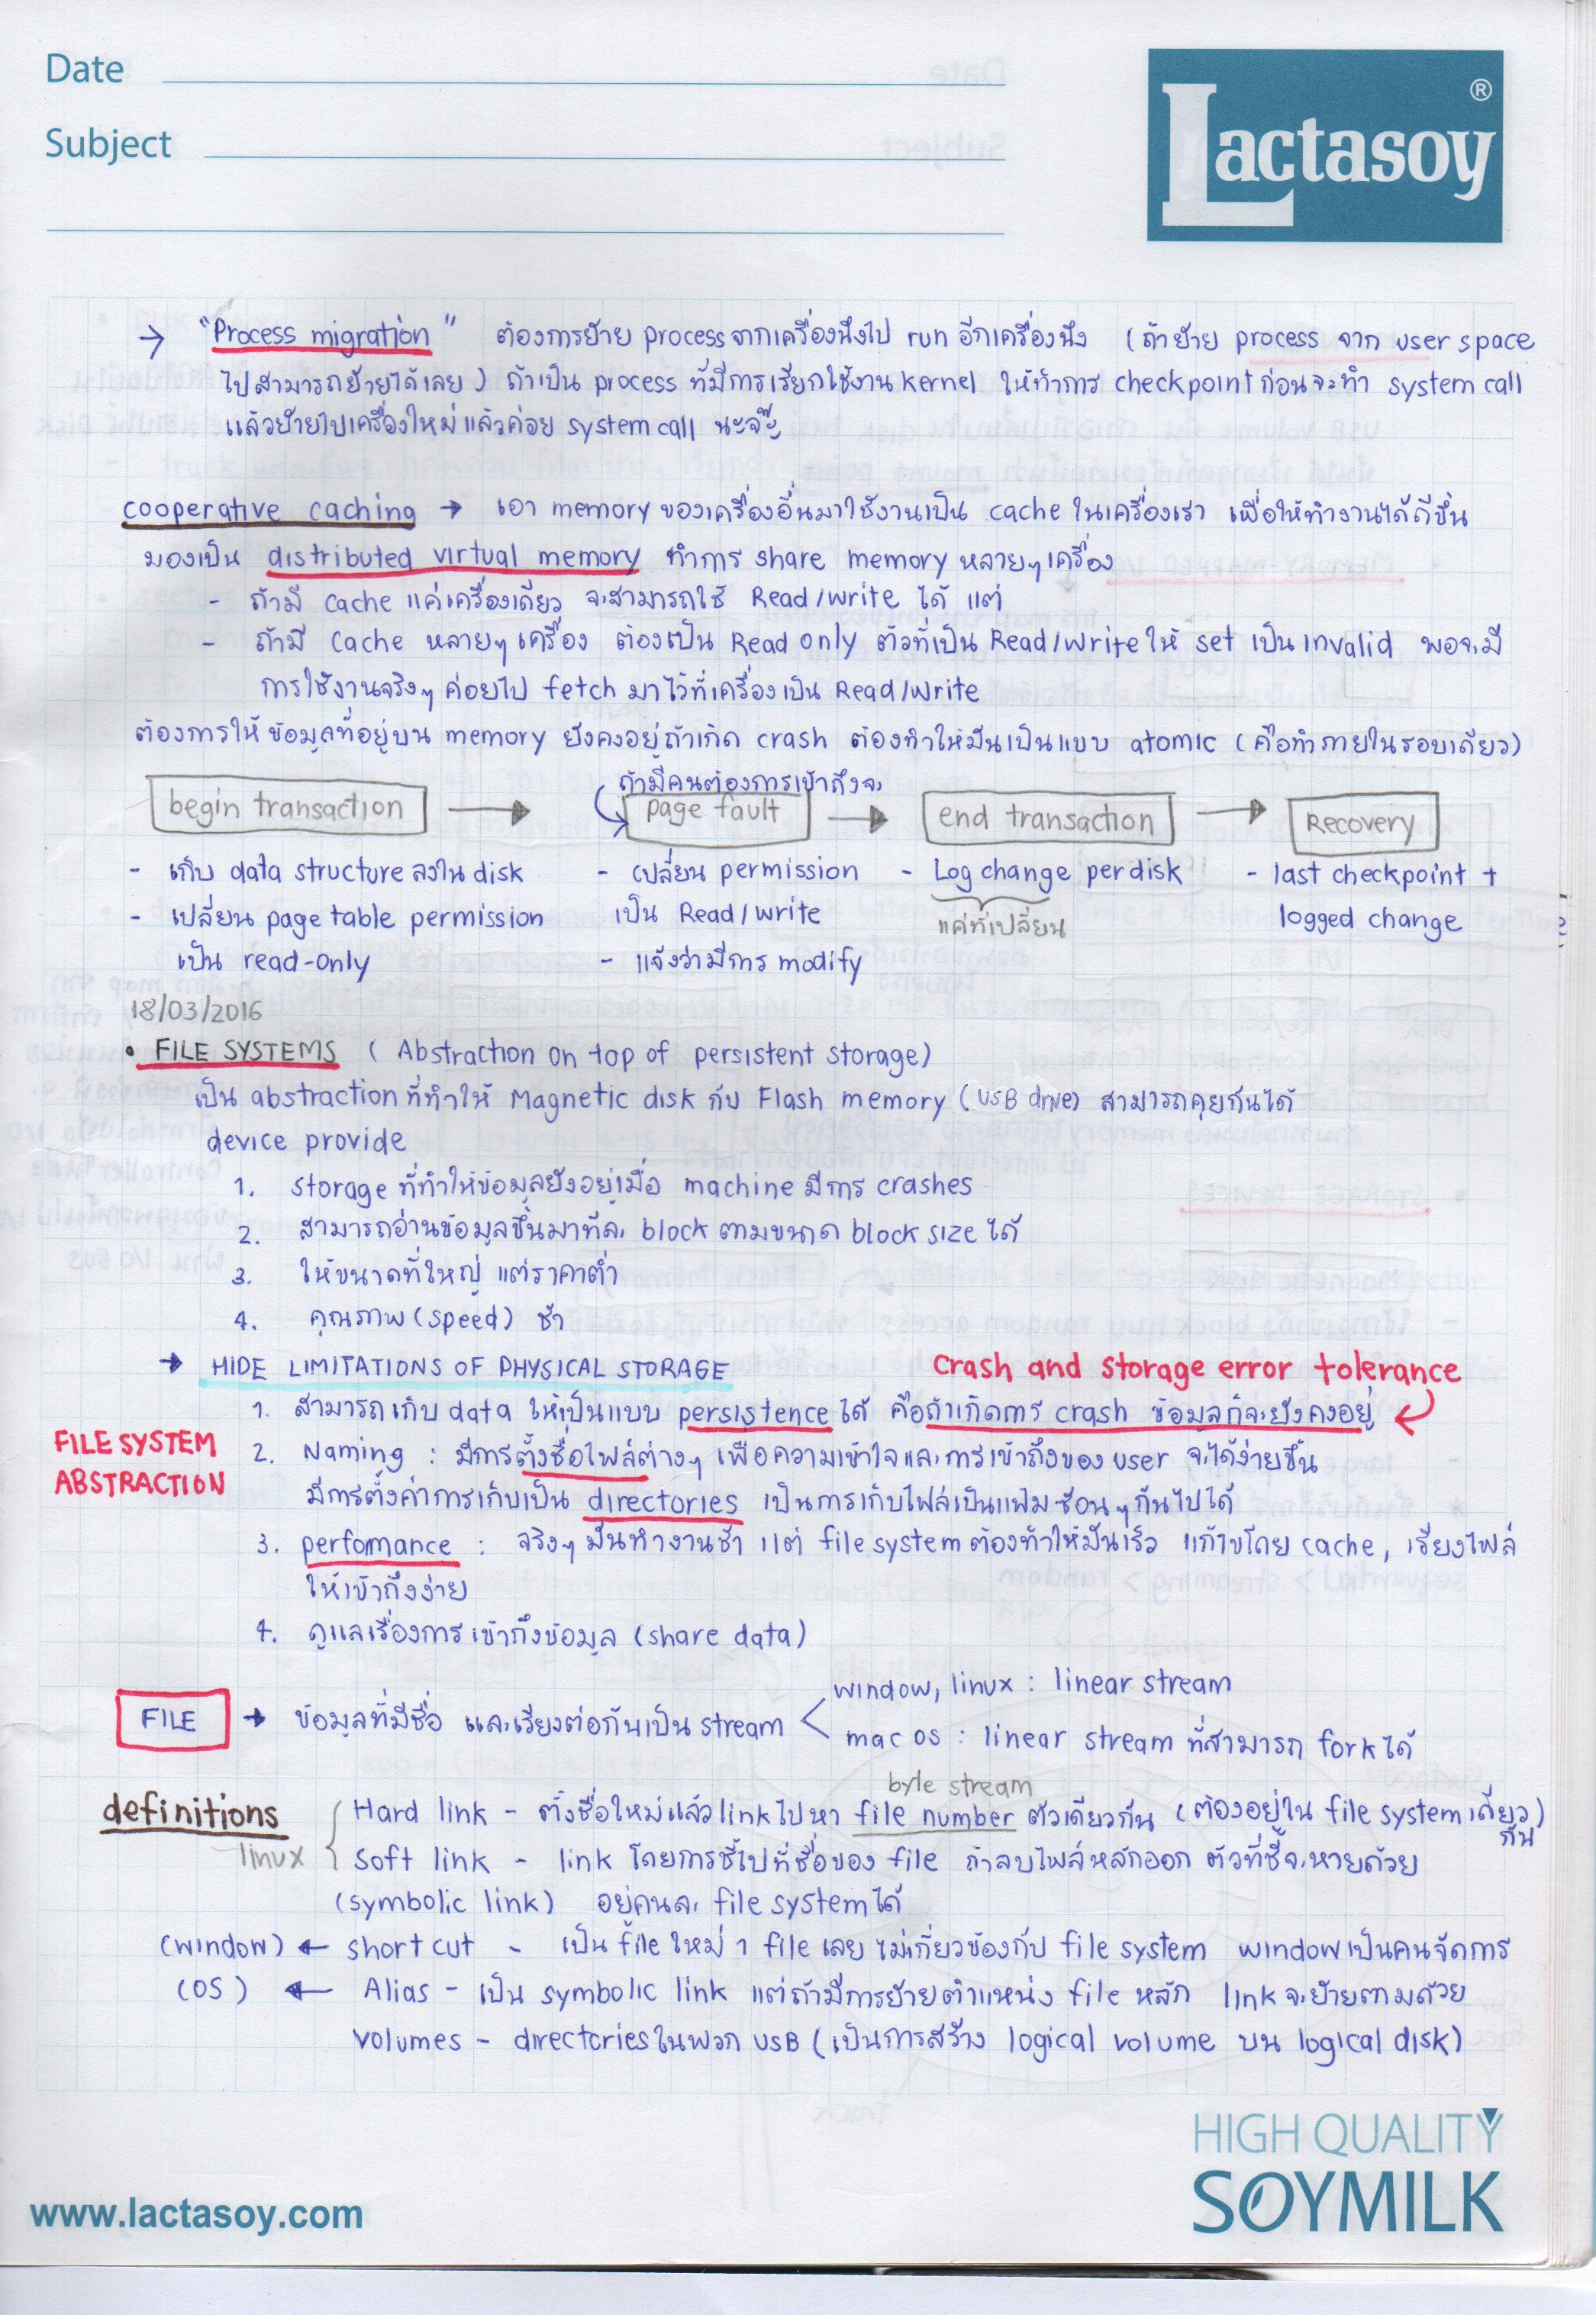 Date
Subject
Lactasoy ®
→ "Process migration" ต้องการย้าย process จากเครื่องนึงไป run อีกเครื่องนึง (ถ้าย้าย process จาก user space
ไปสามารถย้ายได้เลย) ถ้าเป็น process ที่มีการเรียกใช้งาน kernel ให้ทำการ checkpoint ก่อนจะทำ system call
แล้วย้ายไปเครื่องใหม่แล้วค่อย system call นะจ๊ะ
cooperative caching → เอา memory ของเครื่องอื่นมาใช้งานเป็น cache ในเครื่องเรา เพื่อให้ทำงานได้ดีขึ้น
มองเป็น distributed virtual memory ทำการ share memory หลายๆ เครื่อง
- ถ้ามี cache แค่เครื่องเดียว จะสามารถใช้ Read/write ได้ แต่
- ถ้ามี cache หลายๆ เครื่อง ต้องเป็น Read only ตัวที่เป็น Read/write ให้ set เป็น invalid พอจะมี
การใช้งานจริงๆ ค่อยไป fetch มาไว้ที่เครื่องเป็น Read/write
ต้องการให้ข้อมูลที่อยู่บน memory ยังคงอยู่ถ้าเกิด crash ต้องทำให้มันเป็นแบบ atomic (คือทำภายในรอบเดียว)
ถ้ามีคนต้องการเข้าถึงจะ
begin transaction → page fault → end transaction → Recovery
- เก็บ data structure ลงใน disk - เปลี่ยน permission - Log change per disk - last checkpoint +
- เปลี่ยน page table permission เป็น Read/write แค่ที่เปลี่ยน logged change
เป็น read-only - แจ้งว่ามีการ modify
18/03/2016
• FILE SYSTEMS (Abstraction on top of persistent storage)
เป็น abstraction ที่ทำให้ Magnetic disk กับ Flash memory (USB drive) สามารถคุยกันได้
device provide
1. storage ที่ทำให้ข้อมูลยังอยู่เมื่อ machine มีการ crashes
2. สามารถอ่านข้อมูลขึ้นมาทีละ block ตามขนาด block size ได้
3. ให้ขนาดที่ใหญ่ แต่ราคาต่ำ
4. คุณภาพ (speed) ช้า
→ HIDE LIMITATIONS OF PHYSICAL STORAGE crash and storage error tolerance
1. สามารถเก็บ data ให้เป็นแบบ persistence ได้ คือถ้าเกิดการ crash ข้อมูลก็จะยังคงอยู่
FILE SYSTEM
ABSTRACTION
2. Naming : มีการตั้งชื่อไฟล์ต่างๆ เพื่อความเข้าใจและการเข้าถึงของ user จะได้ง่ายขึ้น
มีการตั้งค่าการเก็บเป็น directories เป็นการเก็บไฟล์เป็นแฟ้มซ้อนๆ กันไปได้
3. perfomance : จริงๆ มันทำงานช้า แต่ file system ต้องทำให้มันเร็ว แก้ไขโดย cache, เรียงไฟล์
ให้เข้าถึงง่าย
4. ดูแลเรื่องการเข้าถึงข้อมูล (share data)
window, linux : linear stream
FILE → ข้อมูลที่มีชื่อ และเรียงต่อกันเป็น stream <
mac os : linear stream ที่สามารถ fork ได้
byte stream
definitions Hard link - ตั้งชื่อใหม่แล้ว link ไปหา file number ตัวเดียวกัน (ต้องอยู่ใน file system เดียว
กัน)
linux Soft link - link โดยการชี้ไปที่ชื่อของ file ถ้าลบไฟล์หลักออก ตัวที่ชี้จะหายด้วย
(symbolic link) อยู่คนละ file system ได้
(window) ← short cut - เป็น file ใหม่ 1 file เลย ไม่เกี่ยวข้องกับ file system window เป็นคนจัดการ
(OS) ← Alias - เป็น symbolic link แต่ถ้ามีการย้ายตำแหน่ง file หลัก link จะย้ายตามด้วย
volumes - directories ในพวก USB (เป็นการสร้าง logical volume บน logical disk)
HIGH QUALITY
SOYMILK
www.lactasoy.com